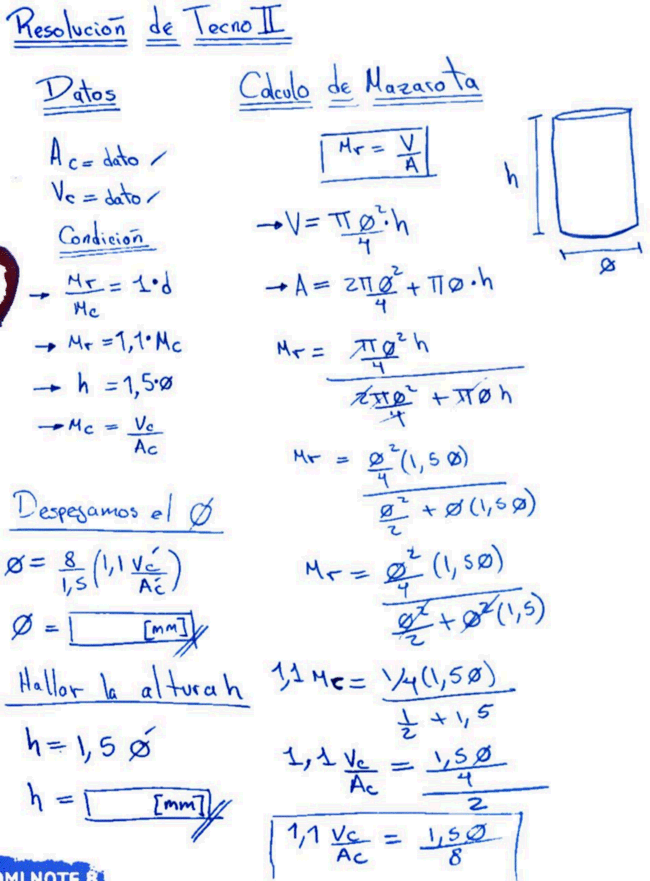 Resolución de Tecno II
Datos
Ac = dato ✓
Vc = dato ✓
Condición
→ Mr/Mc = 1·d
→ Mr = 1,1·Mc
→ h = 1,5·ø
→ Mc = Vc/Ac
Despejamos el Ø
Ø = 8/1,5 (1,1 Vc/Ac)
Ø = [mm]
Hallar la altura h
h = 1,5 Ø
h = [mm]
Calculo de Mazarota
Mr = V/A
→ V = πø²/4·h
→ A = 2πø²/4 + πø·h
Mr = (πø²/4 h) / (2πø²/4 + πøh)
Mr = (ø²/4 (1,5ø)) / (ø²/2 + ø(1,5ø))
Mr = (ø²/4 (1,5ø)) / (ø²/2 + ø²(1,5))
1,1 Mc = (1/4(1,5ø)) / (1/2 + 1,5)
1,1 Vc/Ac = (1,5ø/4) / 2
1,1 Vc/Ac = 1,5ø/8
h
ø
MI NOTE 8